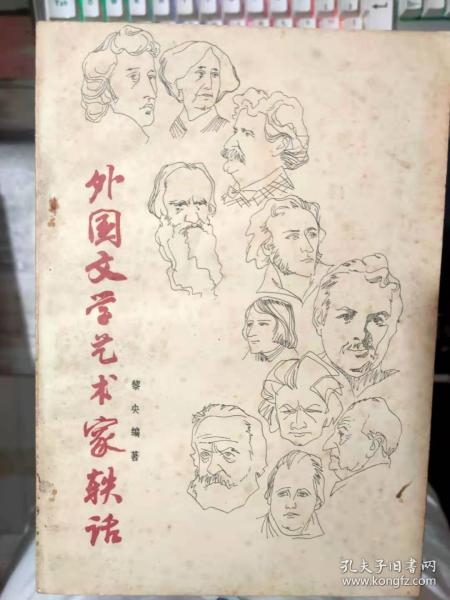 外国文学艺术家轶话
黎央编著
孔夫子旧书网
www.kongfz.com